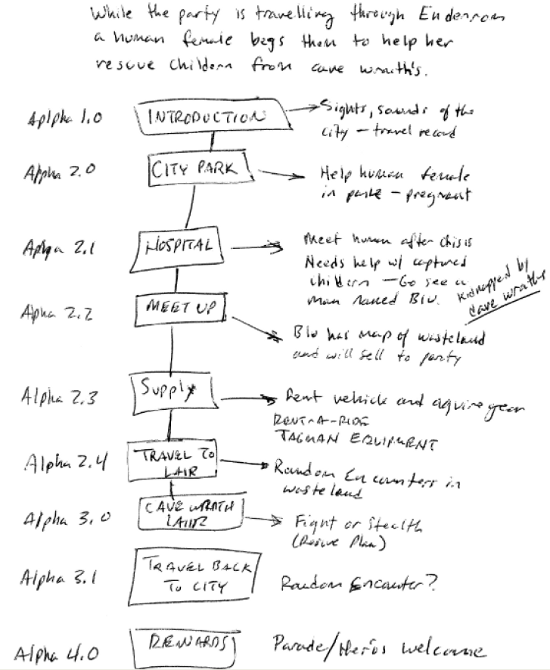 While the party is travelling through Endenrom
a human female begs them to help her
rescue children from cave wraith's.
Aplpha 1.0
INTRODUCTION
Sights, sounds of the
city - travel record
Alpha 2.0
CITY PARK
Help human female
in park - pregnant
Alpha 2.1
HOSPITAL
Meet human after
Needs help w/ captured
children - Go see a
man named Blu.
Kidnapped by
cave wraiths
Alpha 2.2
MEET UP
Blu has map of wasteland
and will sell to party
Alpha 2.3
Supply
Rent vehicle and aquire gear
RENT-A-RIDE
TAGMAN EQUIPMENT
Alpha 2.4
TRAVEL TO
LAIR
Random Encounters in
wasteland
Alpha 3.0
CAVE WRAITH
LAIR
Fight or Stealth
(Rescue Plan)
Alpha 3.1
TRAVEL BACK
TO CITY
Random Encounter?
Alpha 4.0
REWARDS
Parade/Hero's Welcome